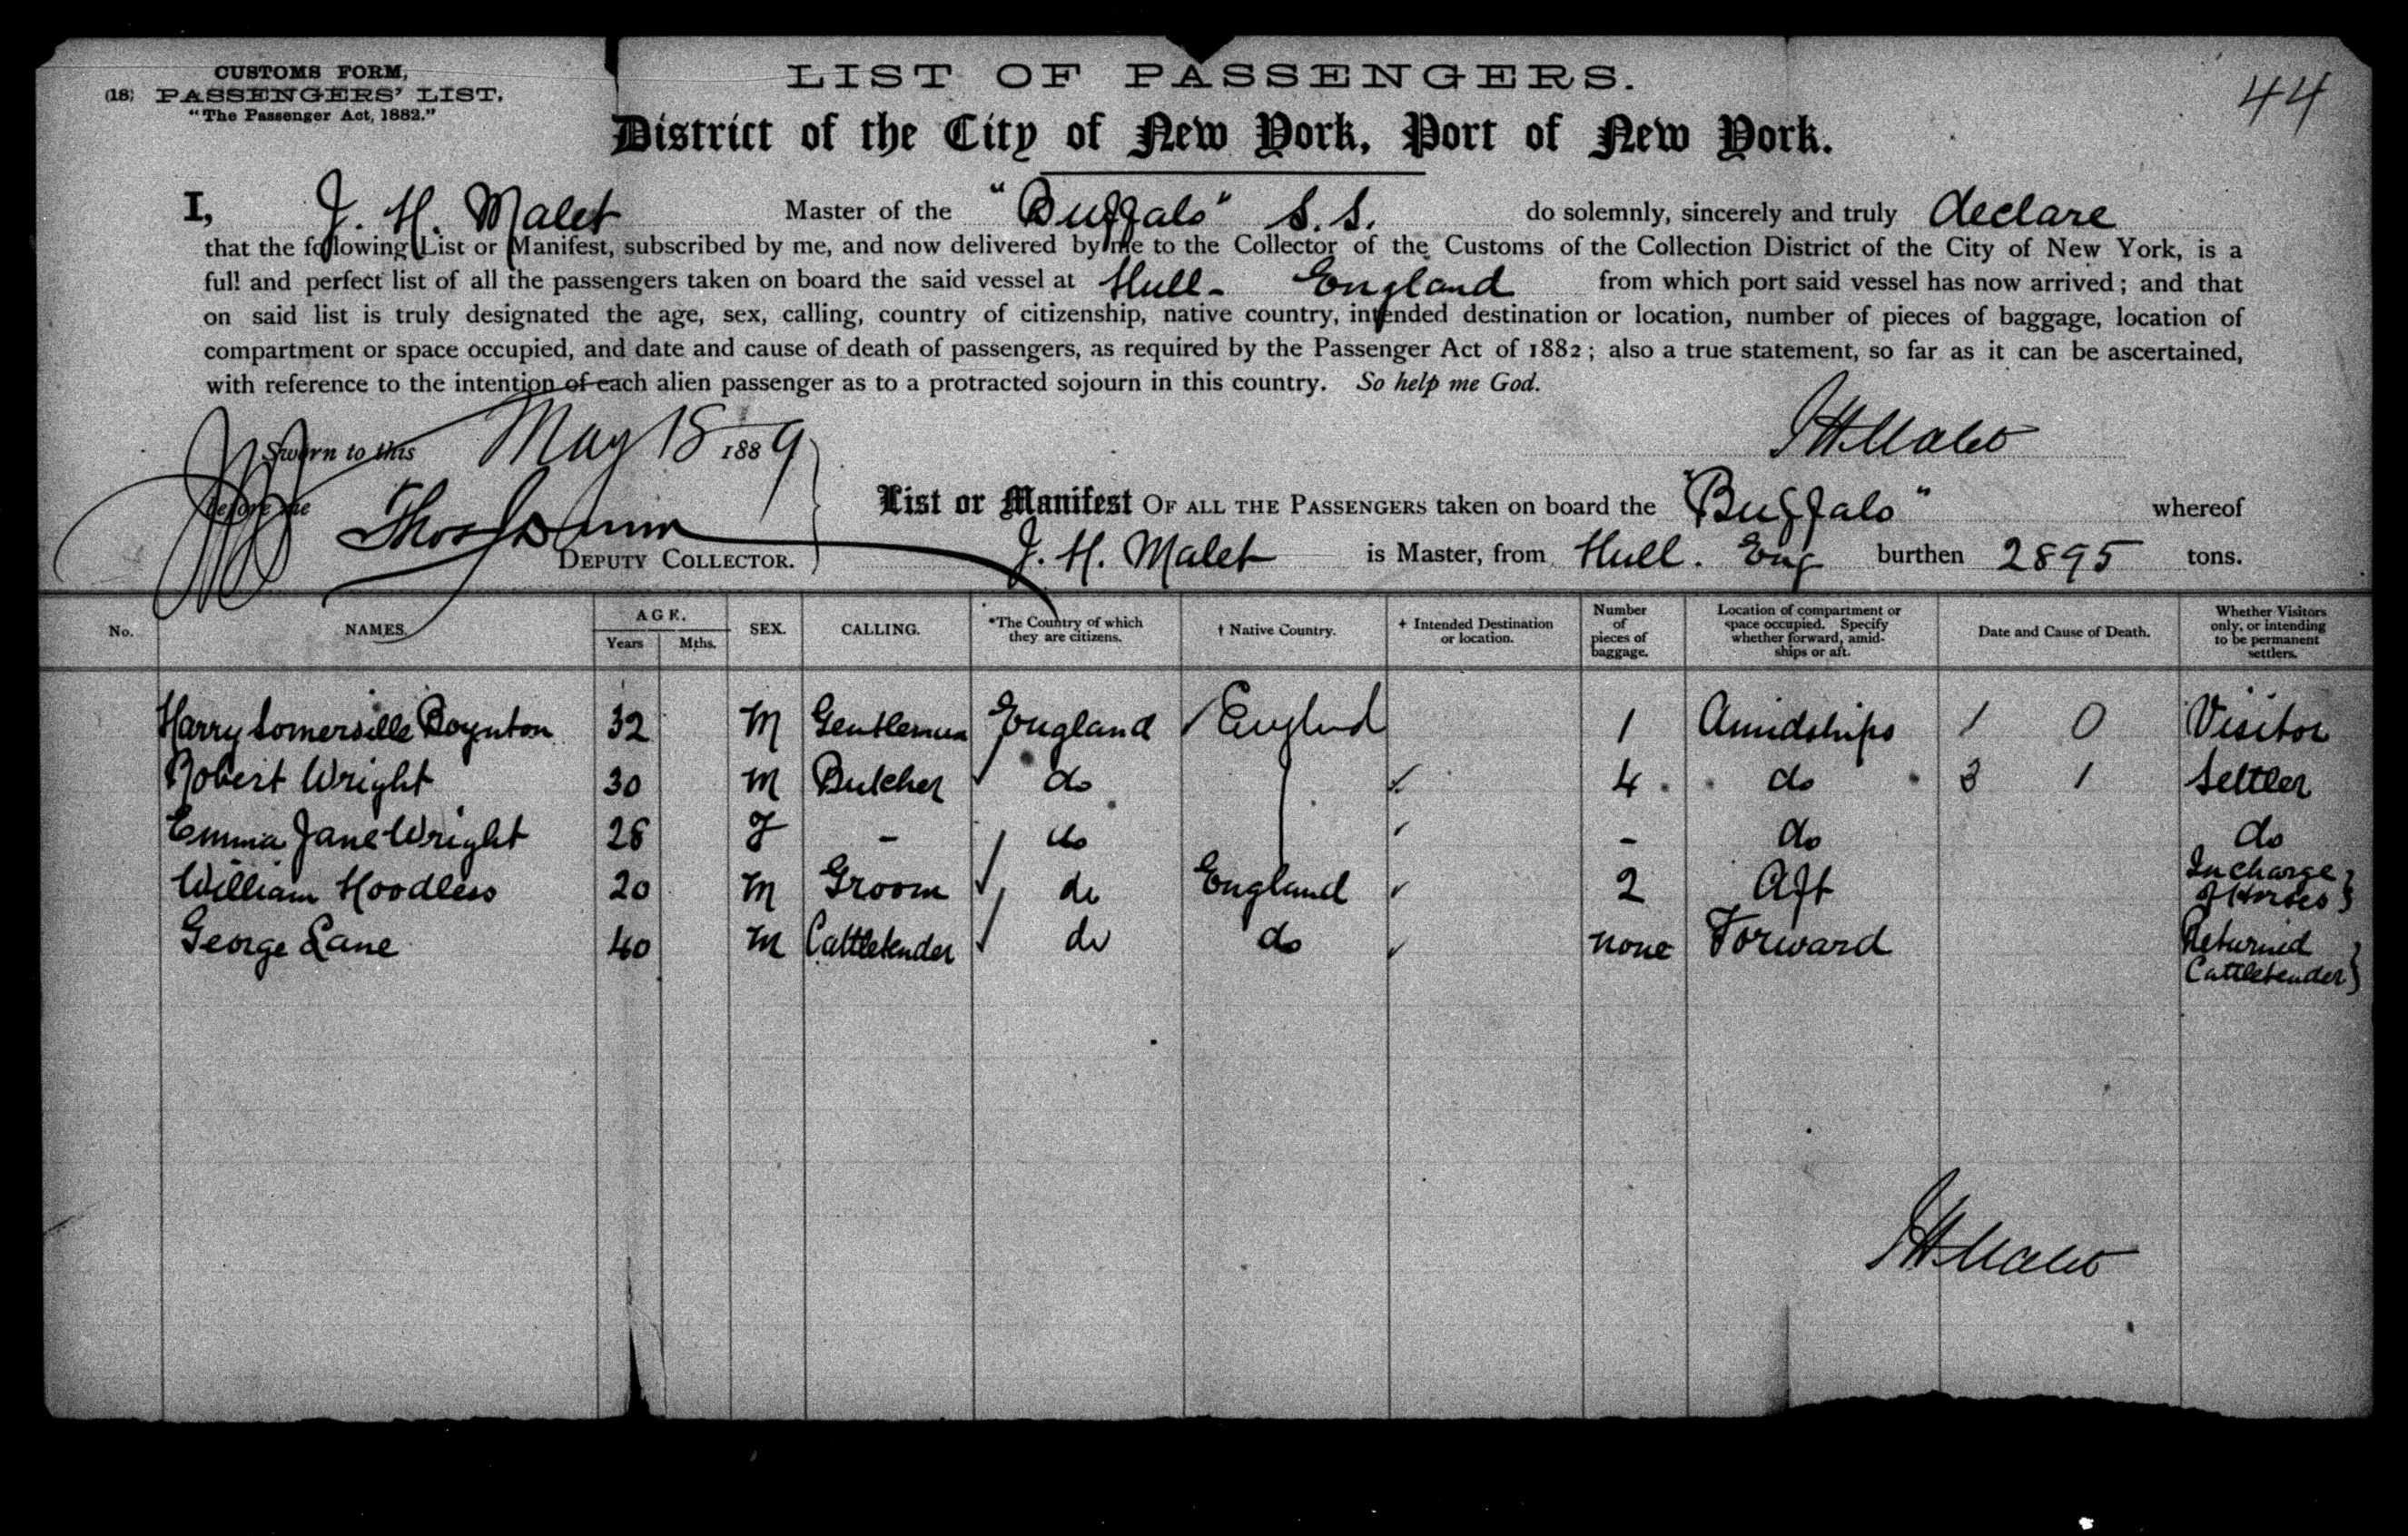 CUSTOMS FORM,
(18) PASSENGERS' LIST.
"The Passenger Act, 1882."
LIST OF PASSENGERS.
44
District of the City of New York, Port of New York.
I, J. H. Malet Master of the "Buffalo" S.S. do solemnly, sincerely and truly declare
that the following List or Manifest, subscribed by me, and now delivered by me to the Collector of the Customs of the Collection District of the City of New York, is a
full and perfect list of all the passengers taken on board the said vessel at Hull - England from which port said vessel has now arrived; and that
on said list is truly designated the age, sex, calling, country of citizenship, native country, intended destination or location, number of pieces of baggage, location of
compartment or space occupied, and date and cause of death of passengers, as required by the Passenger Act of 1882; also a true statement, so far as it can be ascertained,
with reference to the intention of each alien passenger as to a protracted sojourn in this country. So help me God.
Sworn to this May 18 1889
JHMalet
before me
List or Manifest OF ALL THE PASSENGERS taken on board the "Buffalo" whereof
DEPUTY COLLECTOR.
J. H. Malet is Master, from Hull. Eng burthen 2895 tons.
No. NAMES. AGE. Years Mths. SEX. CALLING. *The Country of which they are citizens. † Native Country. + Intended Destination or location. Number of pieces of baggage. Location of compartment or space occupied. Specify whether forward, amidships or aft. Date and Cause of Death. Whether Visitors only, or intending to be permanent settlers.
Harry Somerville Boynton 32 M Gentleman England England 1 Amidships 1 0 Visitor
Robert Wright 30 M Butcher do 4 do 3 1 Settler
Emma Jane Wright 28 F - do - do do
William Hoodless 20 M Groom do England 2 Aft In charge of Horses
George Lane 40 M Cattletender do do none Forward Returned Cattletender
JHMalet